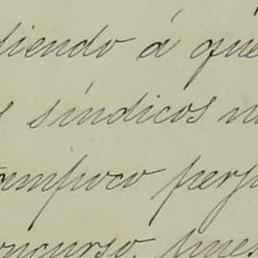 diendo á que
síndicos
tampoco perju
oncurso, pues